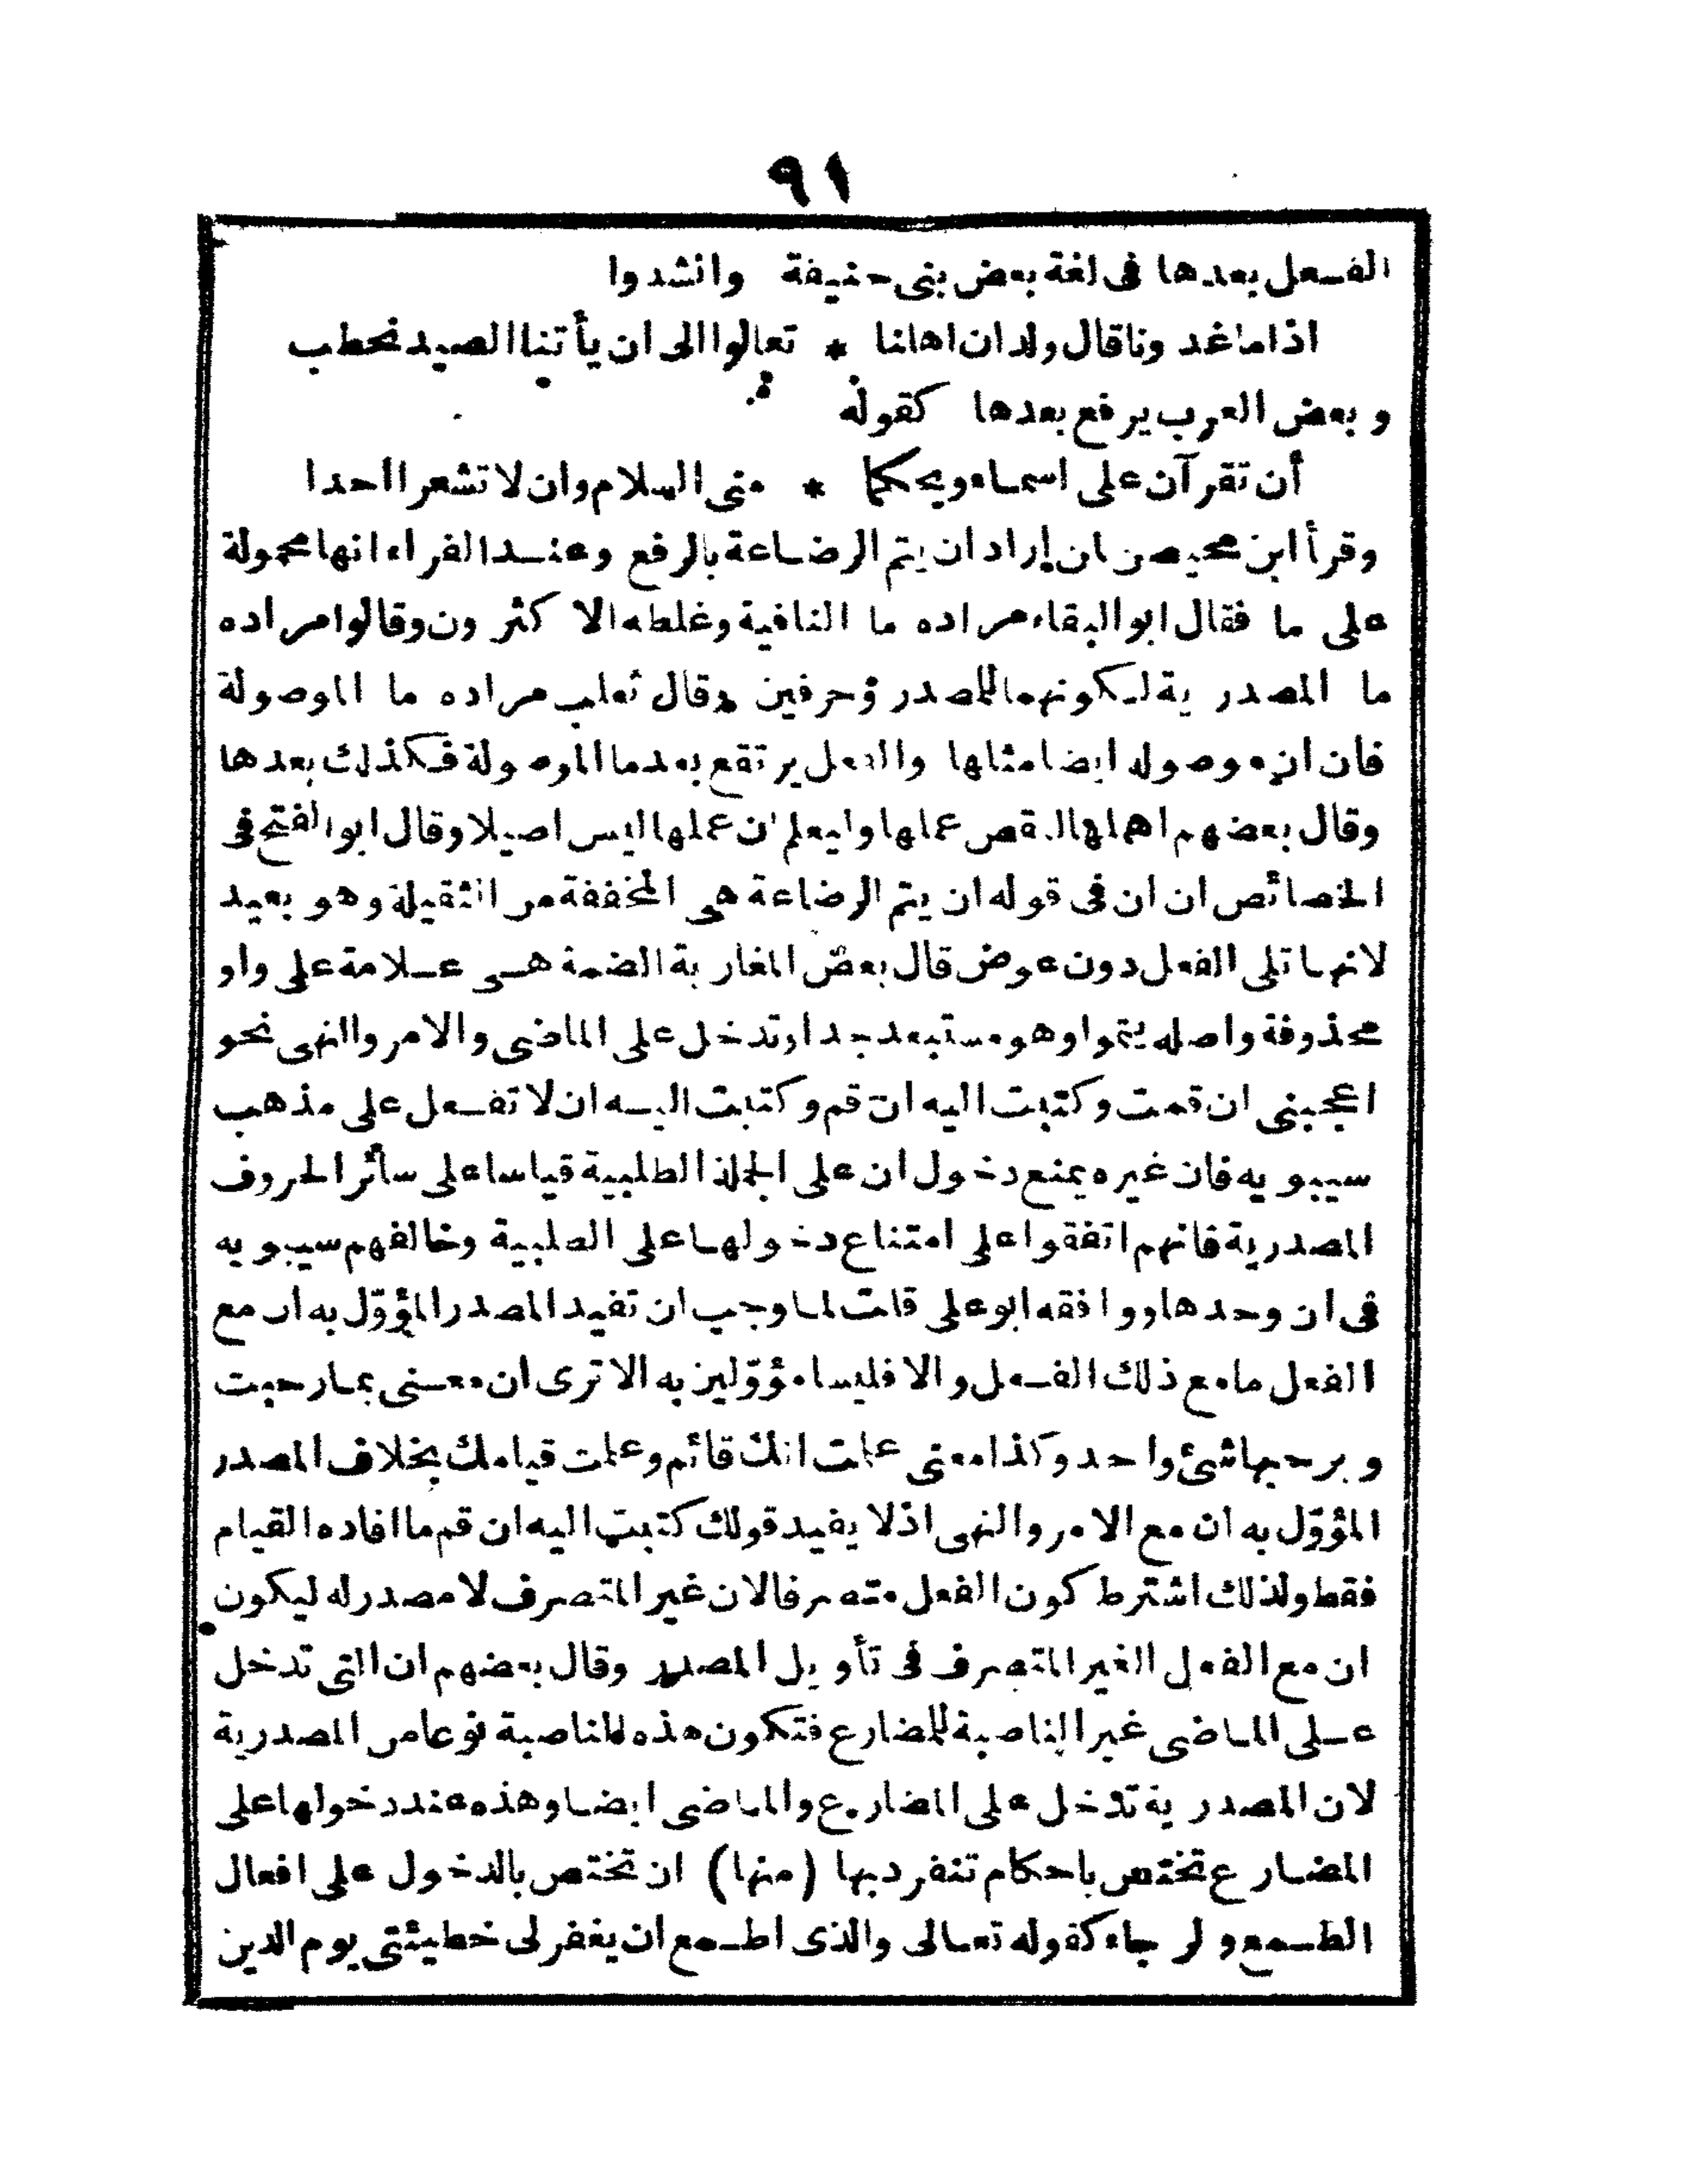 ٩١
الفعل بعدها فى لغة بعض بنى حنيفة وانشدوا
اذا ما غدونا قال ولدان اهلنا * تعالوا الى ان يأتنا الصيد نحطب
وبعض العرب يرفع بعدها كقوله
أن تقرآن على اسماء ويحكما * منى السلام وان لا تشعرا احدا
وقرأ ابن محيصن لمن اراد ان يتم الرضاعة بالرفع وعند الفراء انها محمولة
على ما فقال ابو البقاء مراده ما النافية وغلطه الاكثرون وقالوا مراده
ما المصدرية لكونهما للمصدر وحرفين وقال ثعلب مراده ما الموصولة
فان ان موصوله ايضا مثلها والفعل يرتقع بعد ما الموصولة فكذلك بعدها
وقال بعضهم اهملها لنقص عملها وليعلم ان عملها ليس اصيلا وقال ابو الفتح فى
الخصائص ان ان فى قوله ان يتم الرضاعة هى المخففة من الثقيلة وهو بعيد
لانها تلى الفعل دون عوض قال بعض المغاربة الضمة هى علامة على واو
محذوفة واصله يتموا وهو مستبعد جدا وتدخل على الماضى والامر والنهى نحو
اعجبنى ان قمت وكتبت اليه ان قم وكتبت اليه ان لا تفعل على مذهب
سيبويه فان غيره يمنع دخول ان على الجملة الطلبية قياسا على سائر الحروف
المصدرية فانهم اتفقوا على امتناع دخولها على الطلبية وخالفهم سيبويه
فى ان وحدها ووافقه ابو على قلت لما وجب ان تفيد المصدر المؤوّل به ان مع
الفعل ما مع ذلك الفعل والا فليسا مؤوّلين به الا ترى ان معنى بما رحبت
وبرحبها شئ واحد وكذا معنى علمت انك قائم وعلمت قيامك بخلاف المصدر
المؤوّل به ان مع الامر والنهى اذ لا يفيد قولك كتبت اليه ان قم ما افاده القيام
فقط ولذلك اشترط كون الفعل متصرفا لان غير المتصرف لا مصدر له ليكون
ان مع الفعل الغير المتصرف فى تأويل المصدر وقال بعضهم ان التى تدخل
على الماضى غير الناصبة للمضارع فتكون هذه الناصبة نوعا من المصدرية
لان المصدرية تدخل على المضارع والماضى ايضا وهذه عند دخولها على
المضارع تختص باحكام تنفرد بها (منها) ان تختص بالدخول على افعال
الطمع والرجاء كقوله تعالى والذى اطمع ان يغفر لى خطيئتى يوم الدين